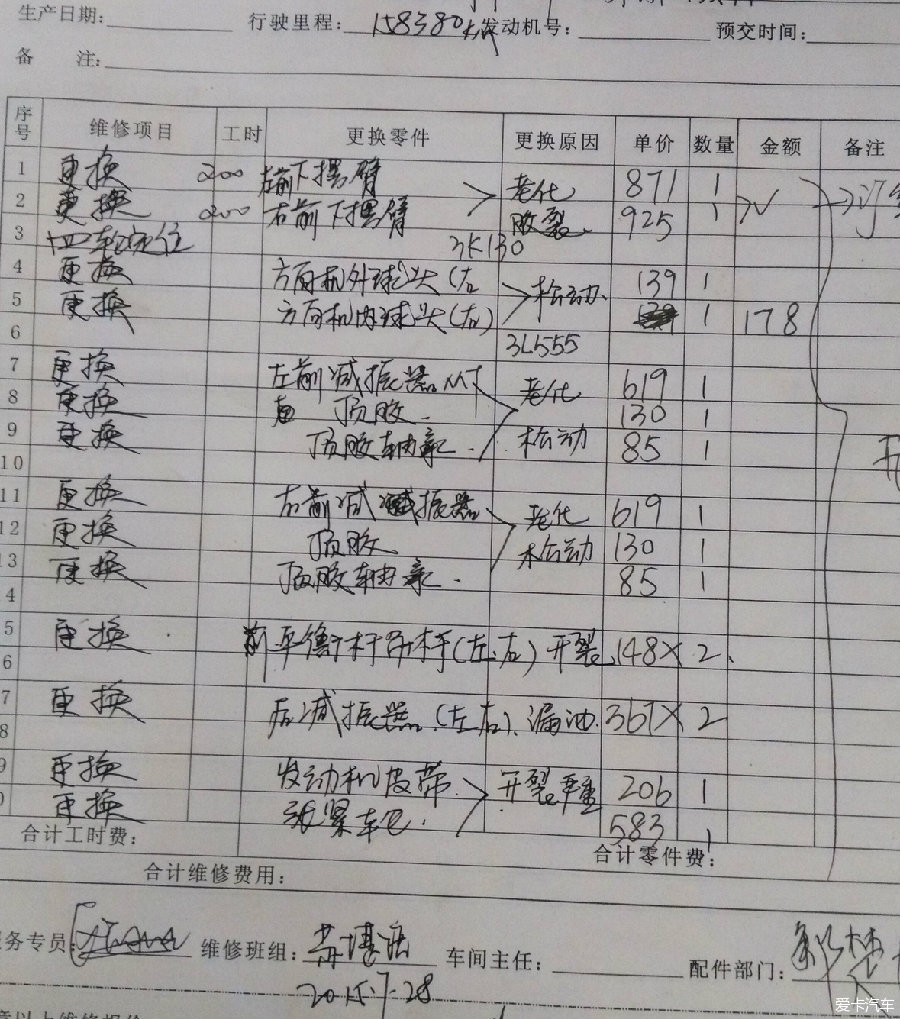 生产日期: 行驶里程: 158380km 发动机号: 预交时间:
备 注:
序号 维修项目 工时 更换零件 更换原因 单价 数量 金额 备注
1 更换 200 左前下摆臂 老化 871 1
2 更换 200 右前下摆臂 胶裂 925 1
3 四轮定位 3K130
4 更换 方向机外球头(左 松动. 139 1
5 更换 方向机内球头(左) 1 178
6 3L555
7 更换 左前减振器 老化 619 1
8 更换 顶胶. 130 1
9 更换 顶胶轴承. 松动 85 1
10
11 更换 右前减振器 老化 619 1
12 更换 顶胶 松动 130 1
13 更换 顶胶轴承. 85 1
4
5 更换 前平衡杆吊杆(左.右) 开裂 148×2.
6
7 更换 后减振器.(左右). 漏油. 367×2
8
9 更换 发动机皮带. 开裂严重 206 1
0 更换 张紧车. 583 1
合计工时费: 合计零件费:
合计维修费用:
服务专员: 维修班组: 车间主任: 配件部门:
2015.7-28
爱卡汽车